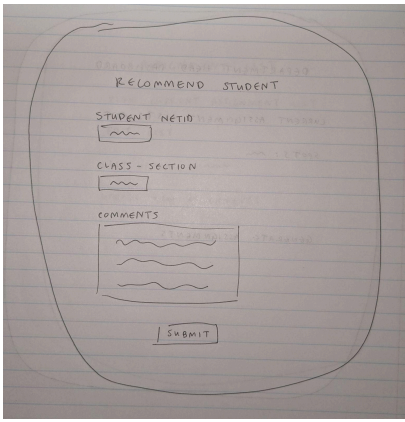 RECOMMEND STUDENT
STUDENT NETID
CLASS - SECTION
COMMENTS
SUBMIT